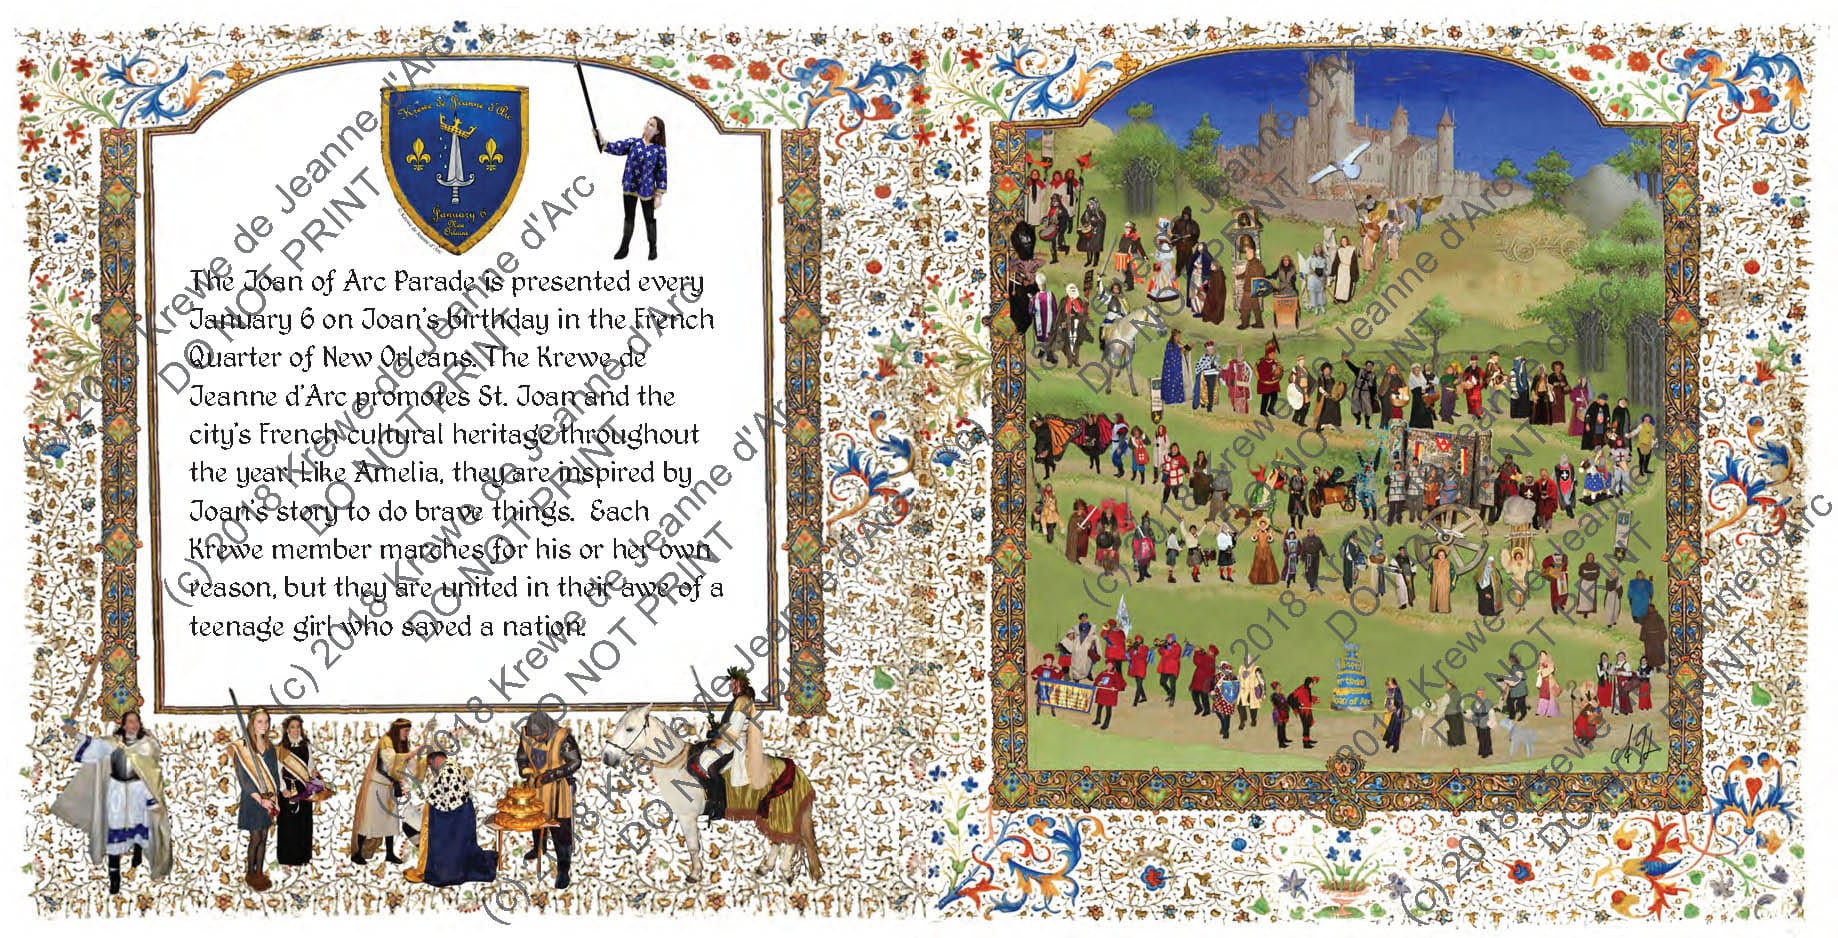 Krewe de Jeanne d'Arc
January 6
New
Orleans
The Joan of Arc Parade is presented every
January 6 on Joan's birthday in the French
Quarter of New Orleans. The Krewe de
Jeanne d'Arc promotes St. Joan and the
city's French cultural heritage throughout
the year. Like Amelia, they are inspired by
Joan's story to do brave things. Each
Krewe member marches for his or her own
reason, but they are united in their awe of a
teenage girl who saved a nation.
(c) 2018 Krewe de Jeanne d'Arc
DO NOT PRINT
(c) 2018 Krewe de Jeanne d'Arc
DO NOT PRINT
(c) 2018 Krewe de Jeanne d'Arc
DO NOT PRINT
(c) 2018 Krewe de Jeanne d'Arc
DO NOT PRINT
(c) 2018 Krewe de Jeanne d'Arc
DO NOT PRINT
(c) 2018 Krewe de Jeanne d'Arc
DO NOT PRINT
(c) 2018 Krewe de Jeanne d'Arc
DO NOT PRINT
(c) 2018 Krewe de Jeanne d'Arc
DO NOT PRINT
of Arc